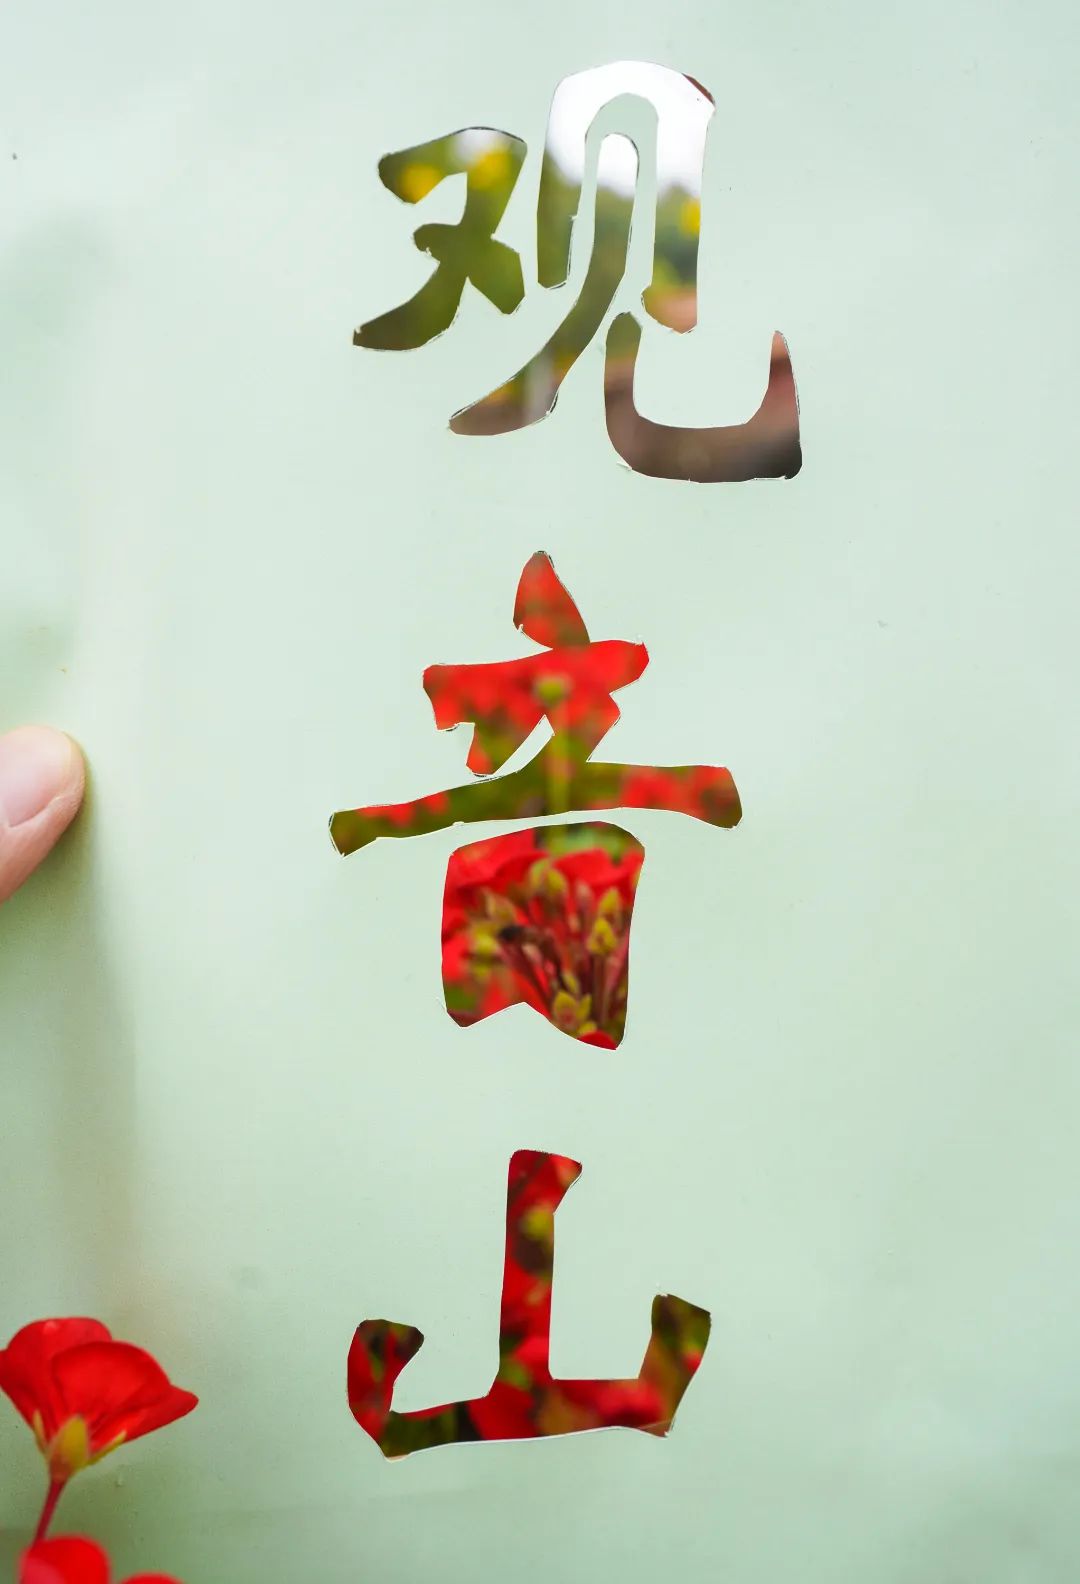 观音山